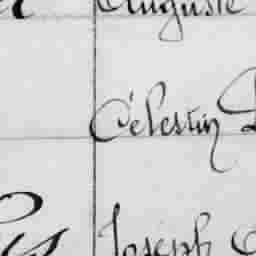 Auguste
Célestin
Joseph